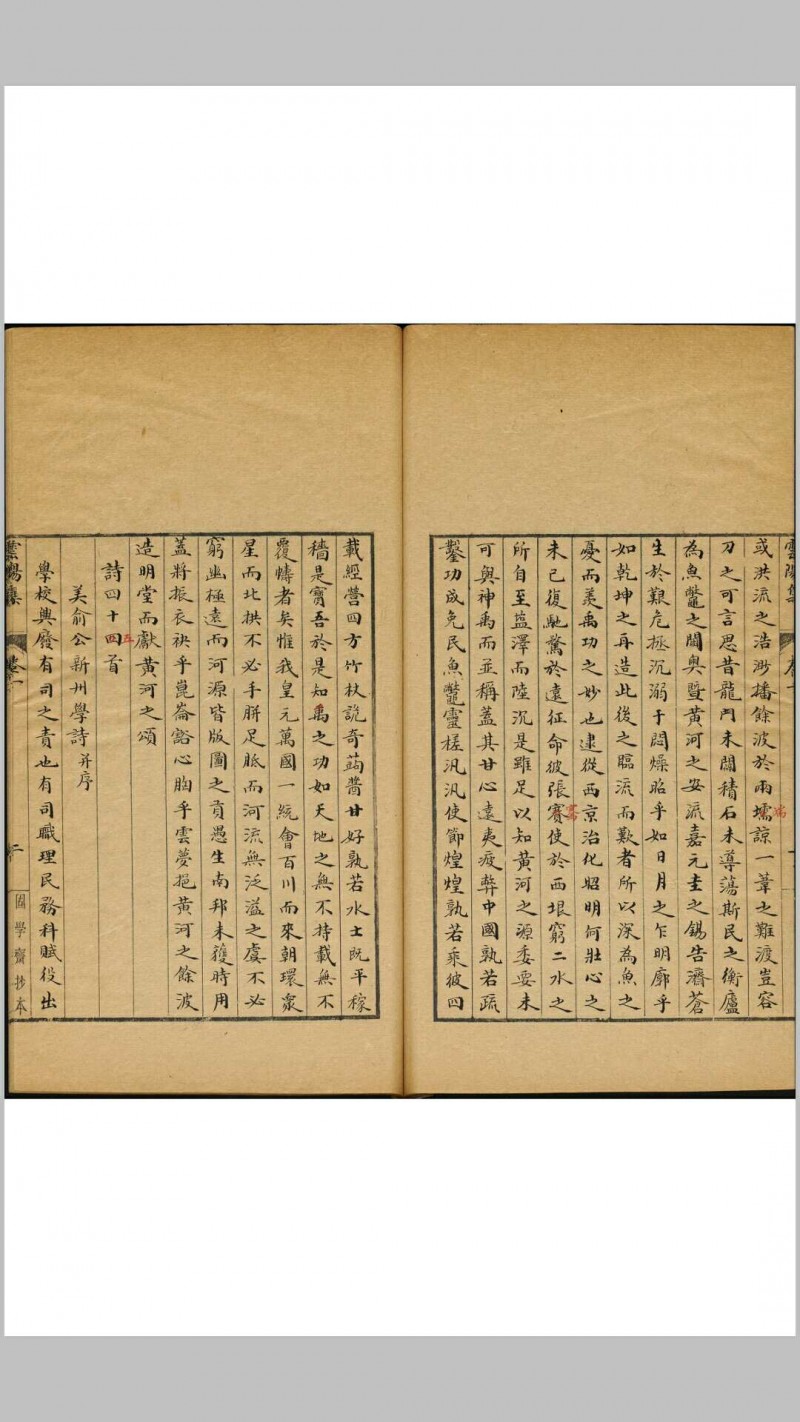 或洪流之浩渺播餘波於兩壖諒一葦之難渡豈容
刀之可言思昔龍門未闢積石未導蕩斯民之衡廬
為魚鼈之閫奥曁黄河之安流嘉元圭之錫告濟蒼
生於艱危拯沉溺于悶燥昭乎如日月之乍明廓乎
如乾坤之再造此後之臨流而歎者所以深為魚之
憂而羨禹功之妙也逮從西京治化昭明何壯心之
未已復馳驚於遠征命彼張賽使於西垠窮二水之
所自至塩澤而陸沉是雖足以知黄河之源委要未
可與神禹而並稱蓋其甘心遠夷疲弊中國孰若疏
鑿功成免民魚鼈靈槎汎汎使節煌煌孰若乘彼四
載經營四方竹杖詭奇蒟醬甘好孰若水土既平稼
穡是寳吾於是知禹之功如天地之無不持載無不
覆幬者矣惟我皇元萬國一統會百川而來朝環衆
星而北拱不必手胼足胝而河流無泛溢之虞不必
窮幽極遠而河源皆版圖之貢愚生南邦未獲時用
蓋將振衣袂乎崑崙豁心胸乎雲夢挹黄河之餘波
造明堂而獻黄河之頌
詩四十四首
美俞公新州學詩并序
學校興廢有司之責也有司職理民務科賦役出
雲陽集
卷一
困學齋抄本